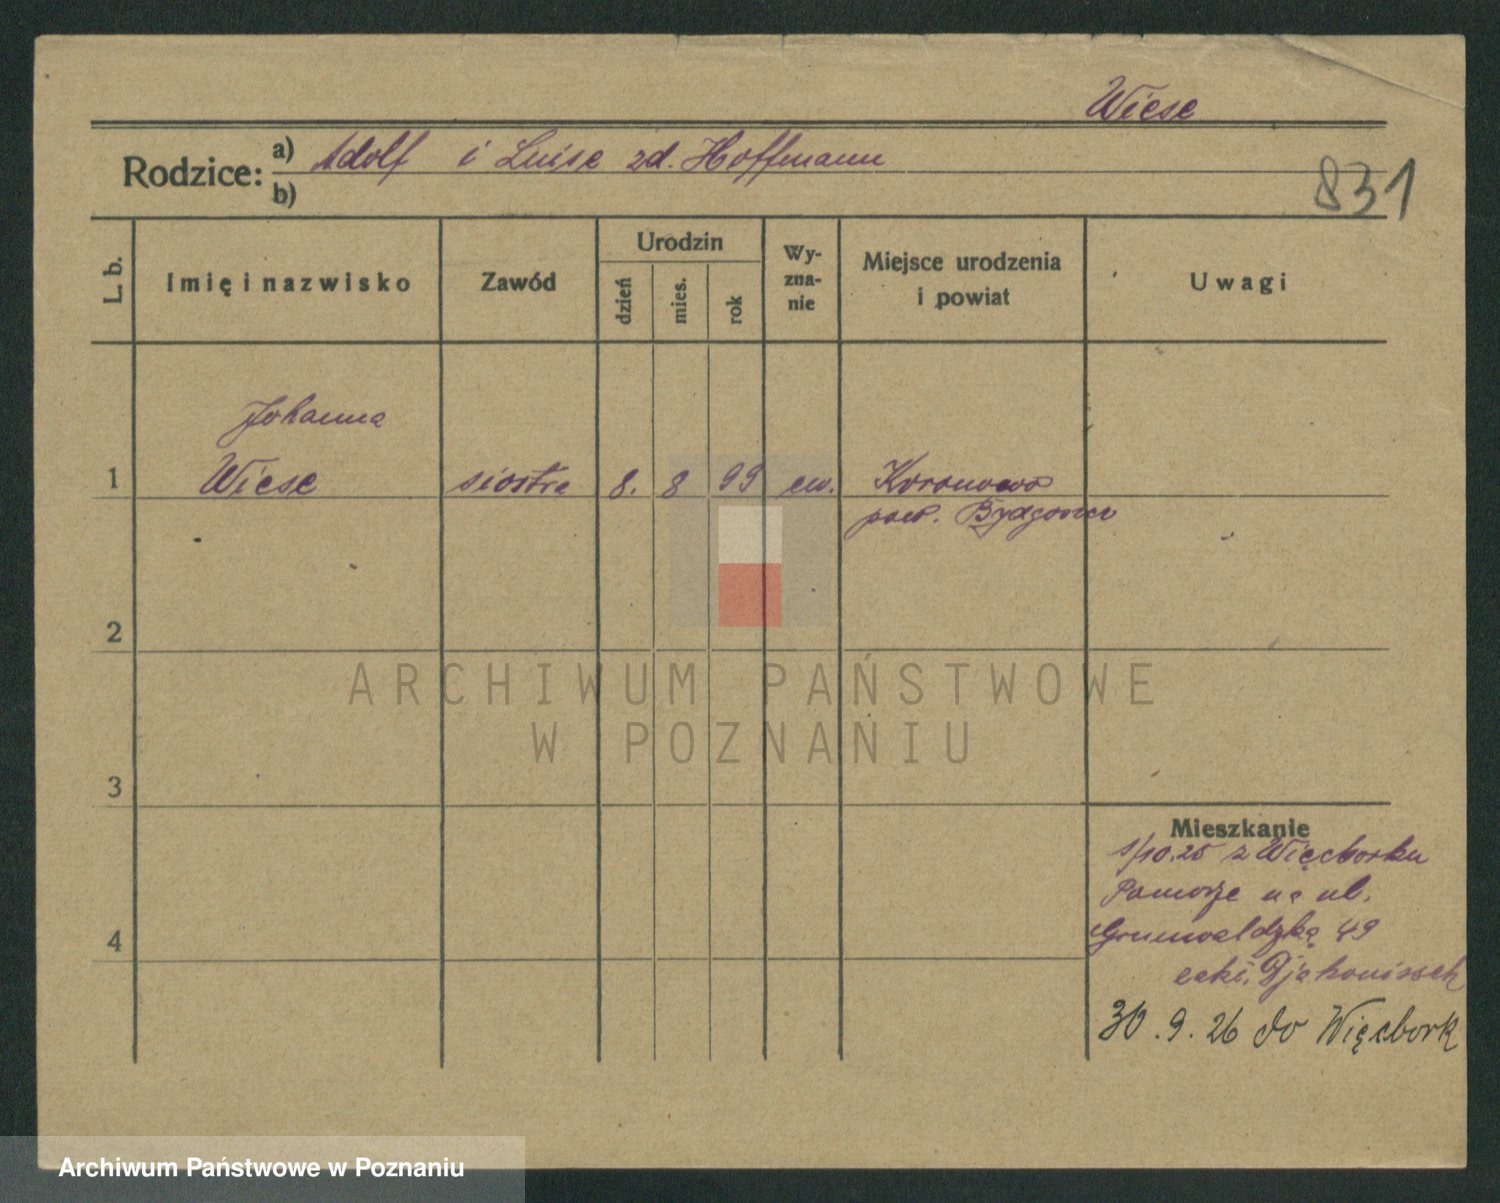 Wiese
Rodzice: a) Adolf i Luise zd. Hoffmann
b)
831
L. b.
Imię i nazwisko
Zawód
Urodzin
dzień
mies.
rok
Wy-
zna-
nie
Miejsce urodzenia
i powiat
Uwagi
Johanna
1 Wiese siostra 8. 8 99 ew. Koronowo
pow. Bydgoszcz
2
ARCHIWUM PAŃSTWOWE
W POZNANIU
3
Mieszkanie
1/10.25 z Więcborku
Pomorze na ul.
4 Grunwaldzką 49
30.9.26 do Więcbork
Archiwum Państwowe w Poznaniu